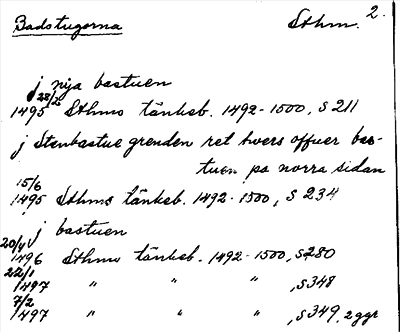 Badstugorna Sthm. 2.
j nya bastuen
28/2 1495 Sthms tänkeb. 1492-1500, s 211
j Stenbastue grenden ret twers offuer bas-
tuen pa norra sidan
15/6 1495 Sthms tänkeb. 1492-1500, s 234
j bastuen
20/4 1496 Sthms tänkeb. 1492-1500, s 280
22/1 1497 " " " , s 348
7/2 1497 " " " , s 349, 2 ggr